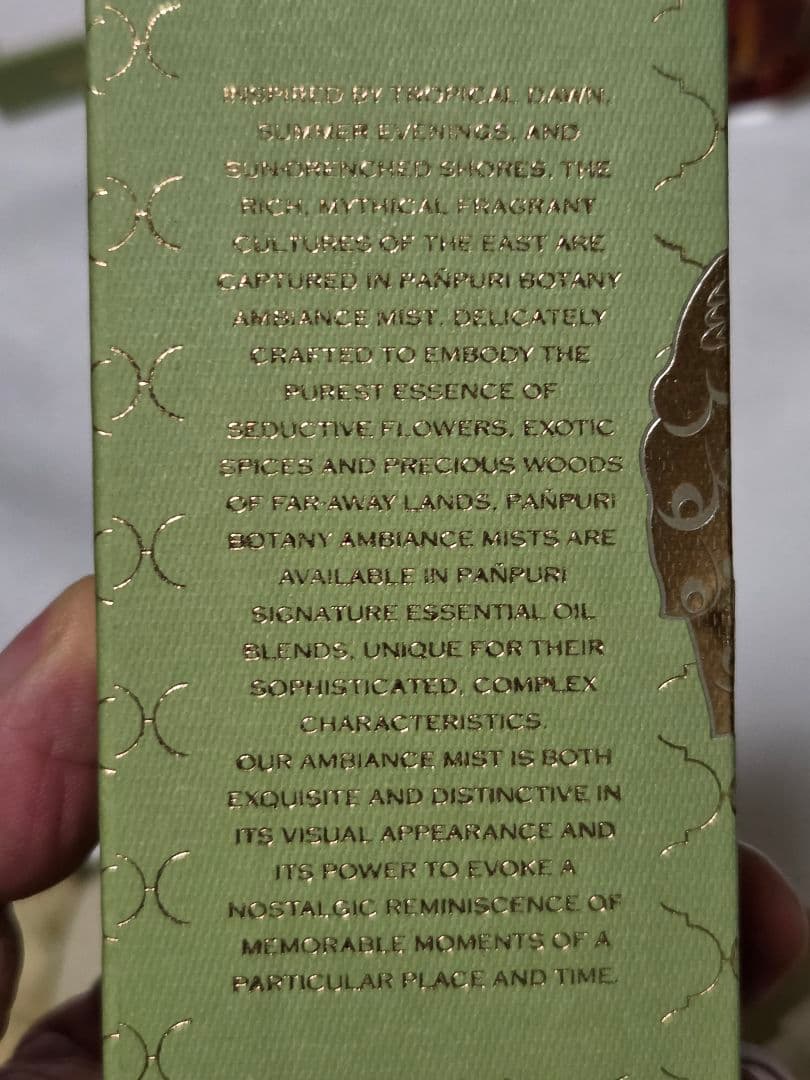 INSPIRED BY TROPICAL DAWN,
SUMMER EVENINGS, AND
SUN-DRENCHED SHORES, THE
RICH, MYTHICAL FRAGRANT
CULTURES OF THE EAST ARE
CAPTURED IN PAÑPURI BOTANY
AMBIANCE MIST. DELICATELY
CRAFTED TO EMBODY THE
PUREST ESSENCE OF
SEDUCTIVE FLOWERS, EXOTIC
SPICES AND PRECIOUS WOODS
OF FAR-AWAY LANDS, PAÑPURI
BOTANY AMBIANCE MISTS ARE
AVAILABLE IN PAÑPURI
SIGNATURE ESSENTIAL OIL
BLENDS, UNIQUE FOR THEIR
SOPHISTICATED, COMPLEX
CHARACTERISTICS.
OUR AMBIANCE MIST IS BOTH
EXQUISITE AND DISTINCTIVE IN
ITS VISUAL APPEARANCE AND
ITS POWER TO EVOKE A
NOSTALGIC REMINISCENCE OF
MEMORABLE MOMENTS OF A
PARTICULAR PLACE AND TIME.